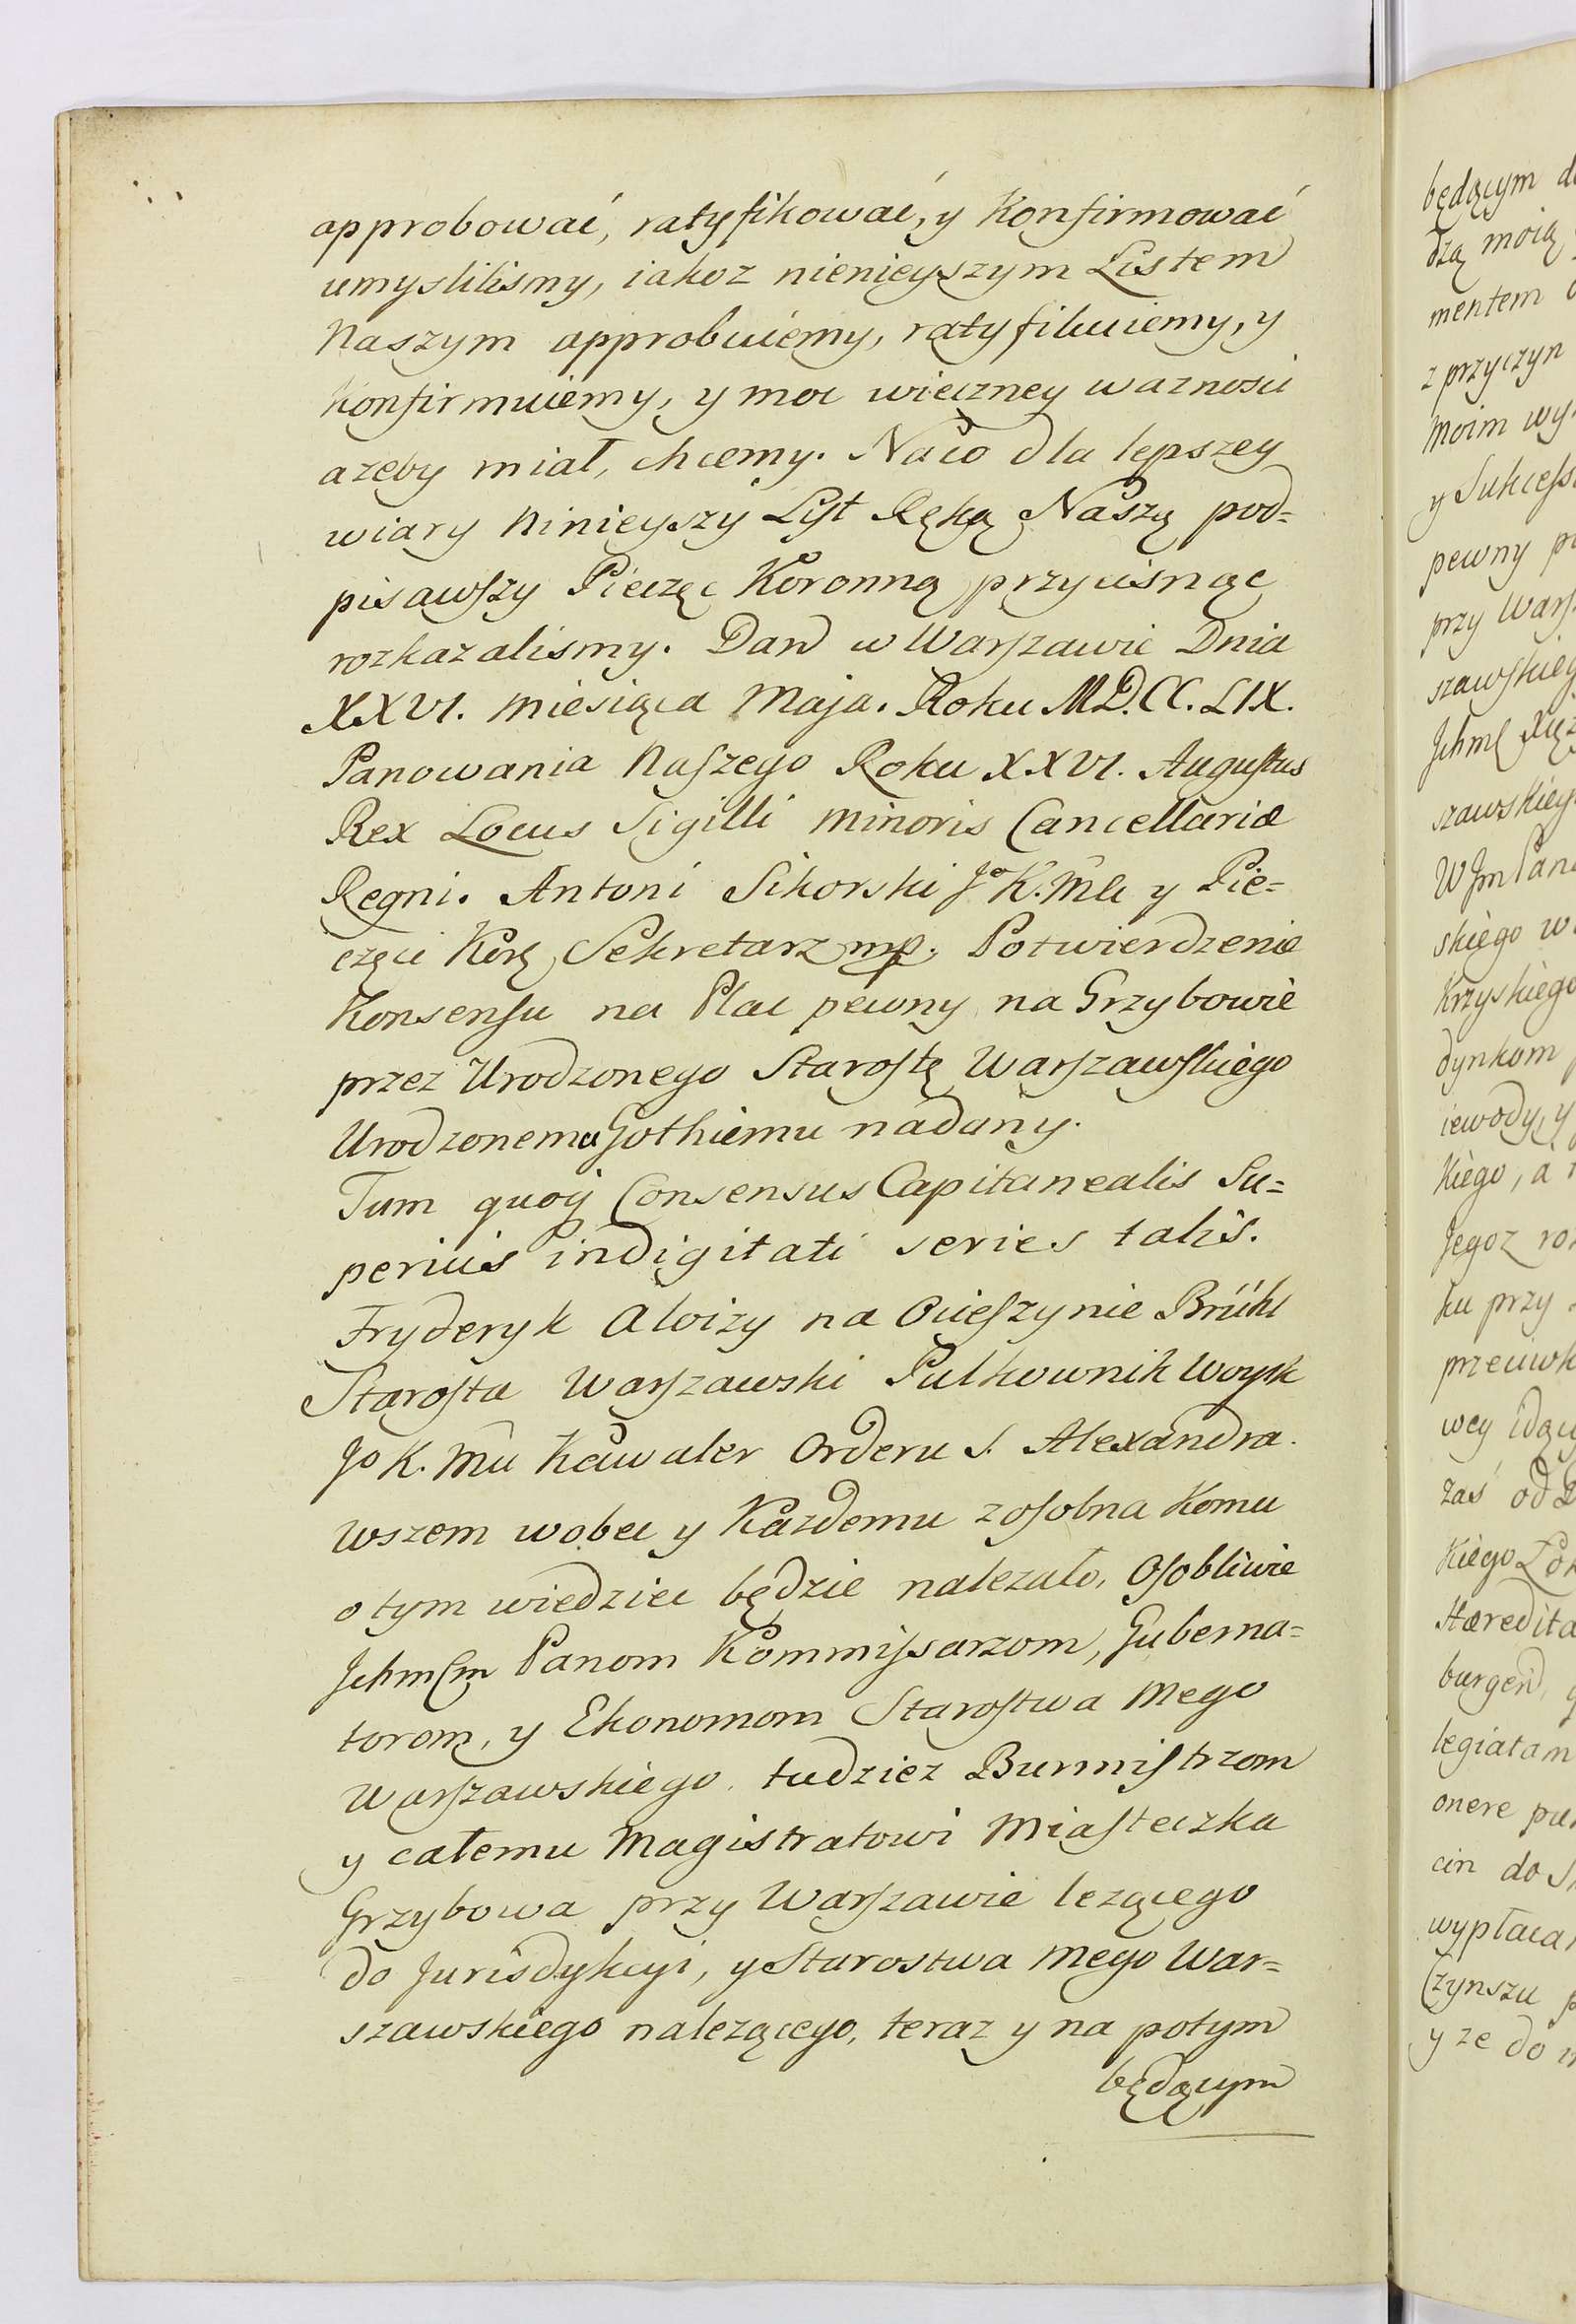 approbować, ratyfikować, y Konfirmować
umyslilismy, iakoz nienieyszym Listem
Naszym approbuiemy, ratyfikuiemy, y
Konfirmuiemy, y moc wieczney waznosci
azeby miał, chcemy. Naco dla lepszey
wiary Ninieyszy List Ręką Naszą pod=
pisawszy Pieczęc Koronną przycisnąc
rozkazalismy. Dan w Warszawie Dnia
XXVI. Miesiąca Maja. Roku MD.CC.LIX.
Panowania Naszego Roku XXVI. Augustus
Rex Locus Sigilli Minoris Cancellariæ
Regni. Antoni Sikorski Jo K. Mci y Pie=
częci Korę Sekretarz mp. Potwierdzenie
Konsensu na Plac pewny na Grzybowie
przez Urodzonego Starostę Warszawskiego
Urodzonemu Gothiemu nadany.
Tum quoq Consensus Capitanealis Su=
perius indigitati series talis.
Fryderyk Aloizy na Ocieszynie Brühl
Starosta Warszawski Pulkownik Woysk
Jo K. Mci Kawaler Orderu S. Alexandra.
Wszem wobec y Kazdemu zosobna Komu
o tym wiedziec będzie nalezało, Osobliwie
Jchmcm Panom Kommissarzom, Guberna=
torom, y Ekonomom Starostwa Mego
Warszawskiego, tudziez Burmistrzom
y całemu Magistratowi Miasteczka
Grzybowa przy Warszawie lezącego
do Jurisdykcyi, y Starostwa Mego War=
szawskiego nalezącego, teraz y na potym
będącym
będącym
dzą moią
mentem
z przyczyn
Moim
y
pewny
przy
szawskiey
szawskiey
skiego
Krzyskiego
dynkom
iewody, y
Kiego, a
Jegoz
ku przy
wey
zaś od
Kiego
burgen
onere
cin do
Czynszu
y ze do